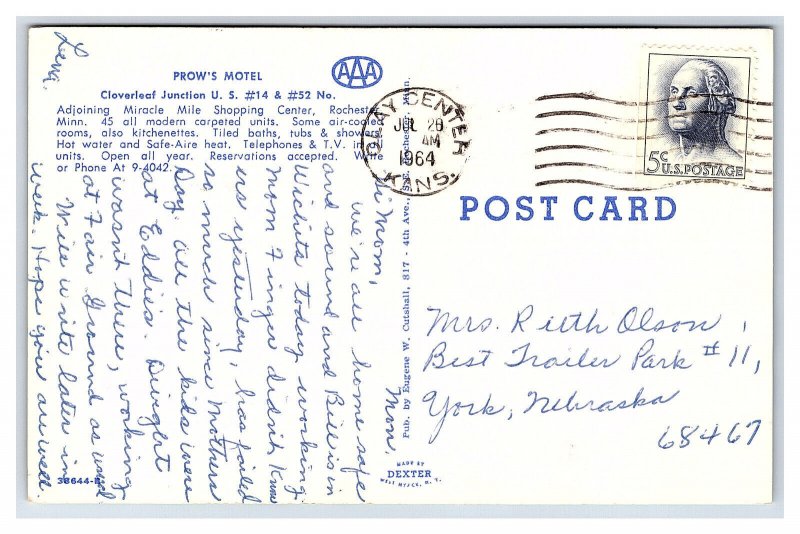 PROW'S MOTEL
AAA
Cloverleaf Junction U. S. #14 & #52 No.
Adjoining Miracle Mile Shopping Center, Rochester
Minn. 45 all modern carpeted units. Some air-cooled
rooms, also kitchenettes. Tiled baths, tubs & showers
Hot water and Safe-Aire heat. Telephones & T.V. in
units. Open all year. Reservations accepted. Write
or Phone At 9-4042.
Mon.
Hi Mom,
We're all home safe
and sound and Bill is in
Wichita today working.
Mom Finger didn't know
us yesterday, has failed
so much since Mothers
Day. All the kids were
at Eddie's. Dwight
wasn't there, working
at Fair Ground as usual
Will write later in
week. Hope you are well.
36644-B
Pub. by Eugene W. Cutshall, 817 - 4th Ave., S.E. Rochester, Minn.
MADE BY
DEXTER
WEST NYACK, N. Y.
CLAY CENTER
JUL 28
AM
1964
KANS.
5c
U.S. POSTAGE
POST CARD
Mrs. Ruth Olson,
Best Trailer Park #11,
York, Nebraska
68467